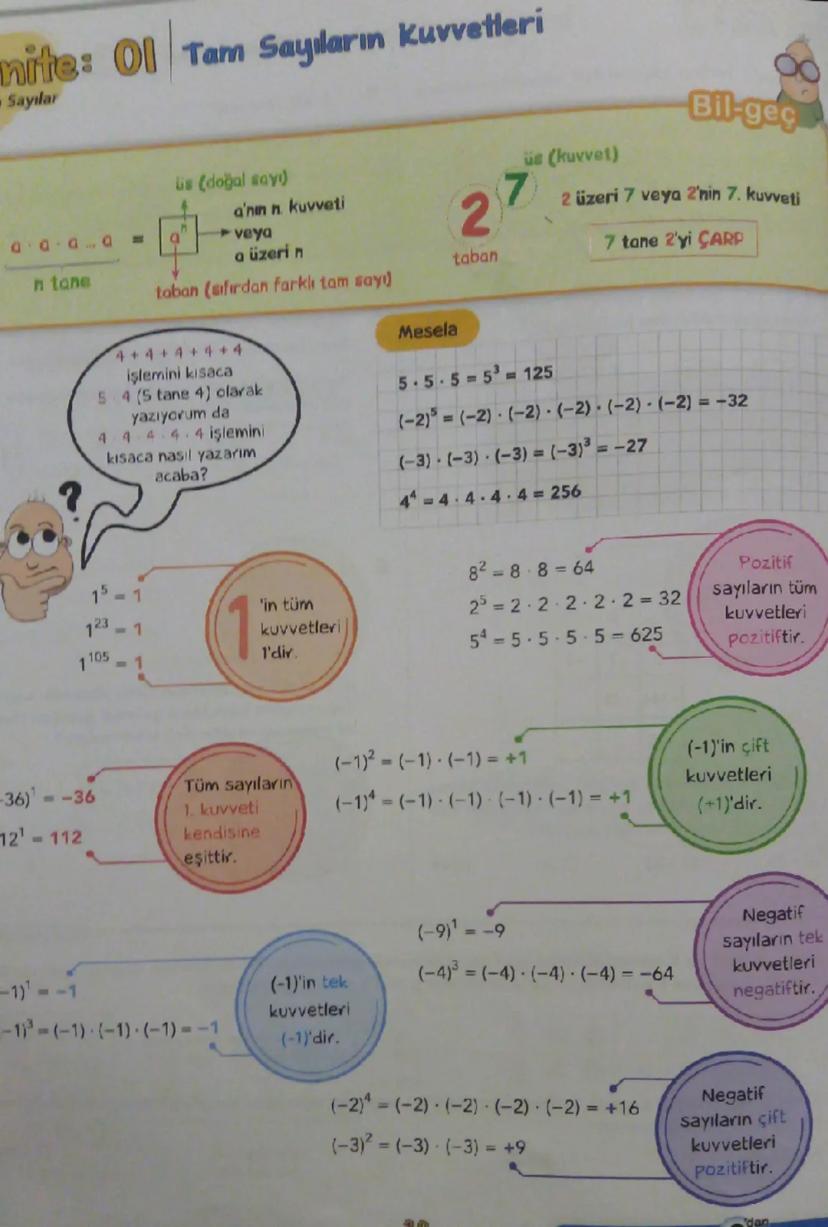 nite: 01 | Tam Sayıların Kuvvetleri
Sayılar
Bil-geç
üs (doğal sayı)
a · a · a ... a = aⁿ
n tane
a'nın n. kuvveti
veya
a üzeri n
taban (sıfırdan farklı tam sayı)
üs (kuvvet)
2⁷
taban
2 üzeri 7 veya 2'nin 7. kuvveti
7 tane 2'yi ÇARP
4 + 4 + 4 + 4 + 4
işlemini kısaca
5 · 4 (5 tane 4) olarak
yazıyorum da
4 · 4 · 4 · 4 · 4 işlemini
kısaca nasıl yazarım
acaba?
?
Mesela
5 · 5 · 5 = 5³ = 125
(−2)⁵ = (−2) · (−2) · (−2) · (−2) · (−2) = −32
(−3) · (−3) · (−3) = (−3)³ = −27
4⁴ = 4 · 4 · 4 · 4 = 256
1⁵ = 1
1²³ = 1
1¹⁰⁵ = 1
1'in tüm
kuvvetleri
1'dir.
8² = 8 · 8 = 64
2⁵ = 2 · 2 · 2 · 2 · 2 = 32
5⁴ = 5 · 5 · 5 · 5 = 625
Pozitif
sayıların tüm
kuvvetleri
pozitiftir.
−36)¹ = −36
12¹ = 112
Tüm sayıların
1. kuvveti
kendisine
eşittir.
(−1)² = (−1) · (−1) = +1
(−1)⁴ = (−1) · (−1) · (−1) · (−1) = +1
(-1)'in çift
kuvvetleri
(+1)'dir.
−1)¹ = −1
−1)³ = (−1) · (−1) · (−1) = −1
(-1)'in tek
kuvvetleri
(-1)'dir.
(−9)¹ = −9
(−4)³ = (−4) · (−4) · (−4) = −64
Negatif
sayıların tek
kuvvetleri
negatiftir.
(−2)⁴ = (−2) · (−2) · (−2) · (−2) = +16
(−3)² = (−3) · (−3) = +9
Negatif
sayıların çift
kuvvetleri
pozitiftir.
'dan